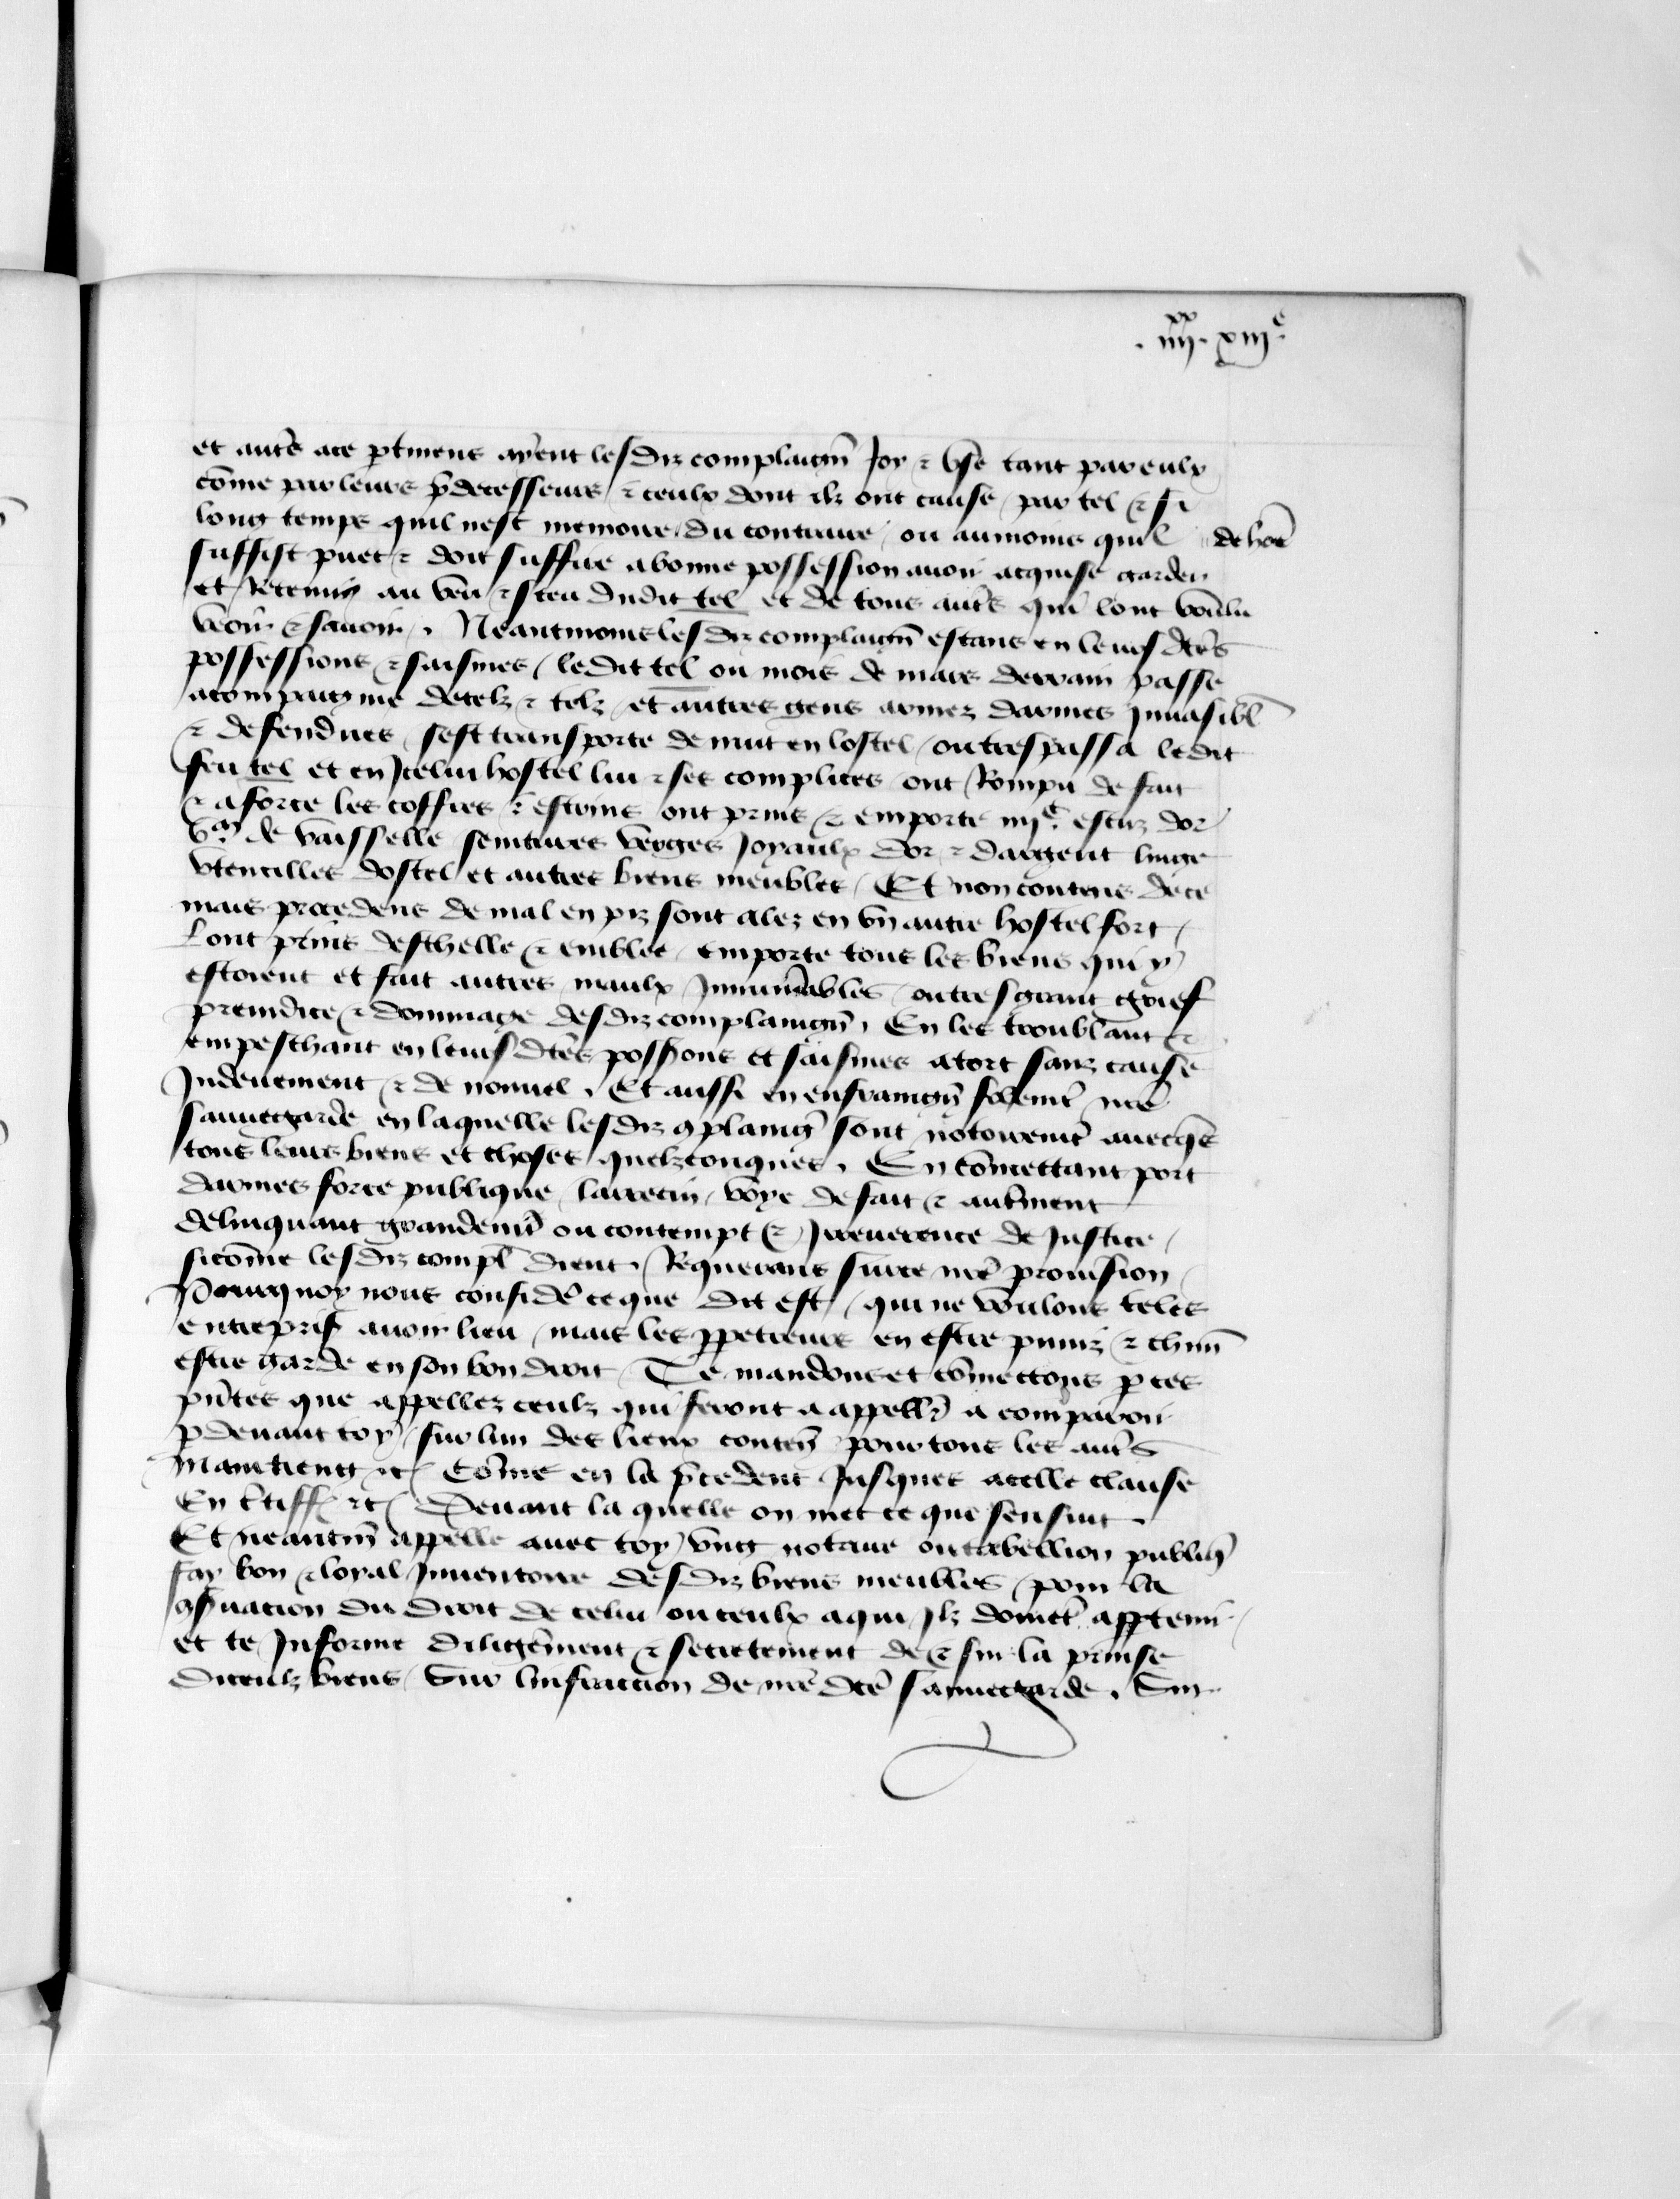 .iiii.xx xiiie.
et autẽs ace ꝑtinens ayent lesdiz complaigñ Joy ⁊ vse tant par eulx
cõme par leurs p̃decesseurs ⁊ ceulx dont ilz ont cause par tel ⁊ si
long temps quil nest memoire du contraire ou aumoins quil
souffist puet ⁊ doit suffire abonne possession auoir acquise garder
et Retenir au veu ⁊ sceu dudit tel et de tous autẽs qui lont voulu
veoir ⁊ sauoir. Neantmoins lesdiz complaigñ estans en leurs dc̃es
possessions ⁊ saisines ledit tel ou mois de mars derrain passe
acompaignie detelz ⁊ telz et autres gens armez darmes Inuasibl̃
⁊ defendues sest transporte de nuit en lostel ou trespassa ledit
feu tel et en Icelui hostel lui ⁊ ses complices ont Rompu de fait
⁊ aforce les coffres ⁊ escrins ont prins ⁊ emporte iiiic. escuz dor
de vaisselle seintures verges Joyaulx dor ⁊ dargent linge
vtencilles dostel et autres biens meubles Et non contens dece
mais procedens de mal en piz sont alez en vñ autre hostel fort
Lont prins deschelle ⁊ emblee emporte tous les biens qui y
estoient et fait autres maulx Innum̃ables ou tresgrant grief
preiudice ⁊ dommage desdiz complaingñ. En les troublant ⁊
empeschant en leurs dc̃es poss̃ons et saisines atort sanz cause
Indeuement ⁊ de nouuel. Et aussi en enfraingñ folemt̃ nr̃e
sauuegarde en laquelle lesdiz ꝯplaing̃ sont notoiremt̃ auecq̃s
tous leurs biens et choses quelzconques. En cõmettant port
darmes force publique larrecin voye defait ⁊ autẽment
delinquant grandemt̃ ou contempt ⁊ Irreuerence de Justice
sicõme lesdiz compl̃ dient. Requerans surce nr̃e prouision
Pourquoy nous consider̃ ce que dit est qui ne voulons teles
entrepris̃ auoir lieu mais les ꝑpetreurs en estre puniz ⁊ chm̃
estre garde en son bon droit Te mandons et cõmettons ꝑ ces
pñtes que appellez ceulz qui seront a appell̃ a comparoir
ꝑdeuant toy sur lun des lieux conteñ pour tous les autẽs
Maintieng ⁊c cõme en la p̃cedent Jusques acelle clause
En c̃tiff̃ ⁊c Deuant la quelle on met ce que sensuit.
Et neantm̃ appelle auec toy vng notaire ou tabellion publiq̃
fay bon ⁊ loyal Inuentoire desdiz biens meubles pour la
ꝯs̃uacion du droit de celui ou ceulx aqui Ilz doiuẽt apꝑtenir
et te Informe diligẽment ⁊ secretement de ⁊ sur la prinse
diceulz biens Sur linfraction de nr̃e dc̃e sauuegarde. Sur